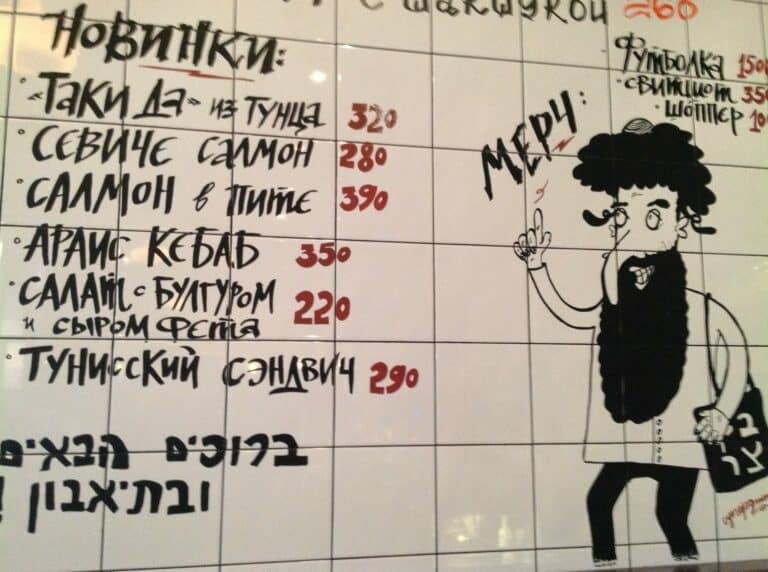 с шакшукой =60
Новинки:
• «Таки да» из тунца 320
• Севиче салмон 280
• Салмон в пите 390
• Араис кебаб 350
• Салат с булгуром
и сыром фета 220
• Тунисский сэндвич 290
ברוכים הבאים
ובת׳אבון!
Мерч:
Футболка 150
• свитшот 350
• шоппер 10